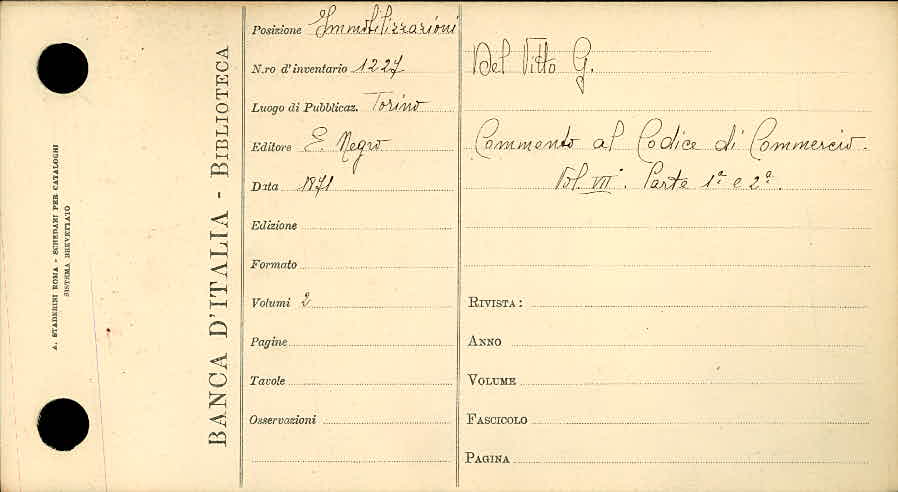 A. STADERINI ROMA - SCHEDARI PER CATALOGHI
SISTEMA BREVETTATO
BANCA D'ITALIA - BIBLIOTECA
Posizione Immobilizzazioni
N.ro d'inventario 1227
Luogo di Pubblicaz. Torino
Editore E. Negro
Data 1871
Edizione
Formato
Volumi 2
Pagine
Tavole
Osservazioni
Del Vitto G.
Commento al Codice di Commercio.
Vol. VII. Parte 1ª e 2ª.
RIVISTA:
ANNO
VOLUME
FASCICOLO
PAGINA